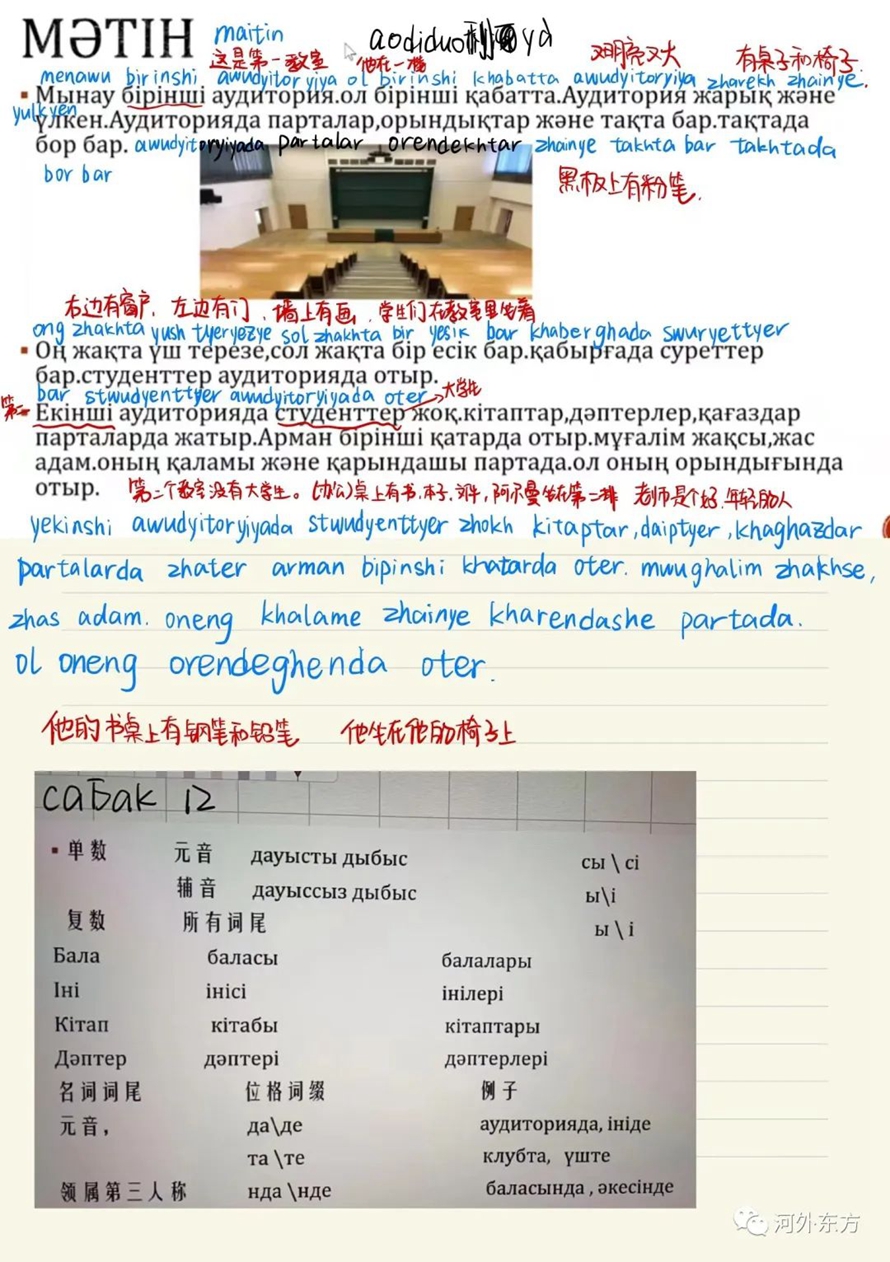 МӘТІН maitin
这是第一教室 他在一楼 又明亮又大 有桌子和椅子
menawu birinshi awudyitoryiya ol birinshi khabatta awudyitoryiya zharekh zhainye.
Мынау бірінші аудитория.ол бірінші қабатта.Аудитория жарық және
yulkyen
үлкен.Аудиторияда парталар,орындықтар және тақта бар.тақтада
бор бар. awudyitoryiyada partalar orendekhtar zhainye takhta bar takhtada
bor bar
黑板上有粉笔.
右边有窗户. 左边有门. 墙上有画. 学生们在教室里坐着
ong zhakhta yush tyeryezye sol zhakhta bir yesik bar khaberghada swuryettyer
Оң жақта үш терезе,сол жақта бір есік бар.қабырғада суреттер
бар.студенттер аудиторияда отыр.
bar stwudyenttyer awudyitoryiyada oter 大学生
第二
Екінші аудиторияда студенттер жоқ.кітаптар,дәптерлер,қағаздар
парталарда жатыр.Арман бірінші қатарда отыр.мұғалім жақсы,жас
адам.оның қаламы және қарындашы партада.ол оның орындығында
отыр. 第二个教室没有大学生。(办公)桌上有书.本子. 阿尔曼坐在第一排 老师是个好.年轻的人
yekinshi awudyitoryiyada stwudyenttyer zhokh kitaptar,daiptyer,khaghazdar
partalarda zhater arman bipinshi khatarda oter. mwughalim zhakhse,
zhas adam. oneng khalame zhainye kharendashe partada.
ol oneng orendeghenda oter.
他的书桌上有钢笔和铅笔 他坐在他的椅子上
сабак 12
单数 元音 дауысты дыбыс сы \ сі
辅音 дауыссыз дыбыс ы\і
复数 所有词尾 ы \ і
Бала баласы балалары
Іні інісі інілері
Кітап кітабы кітаптары
Дәптер дәптері дәптерлері
名词词尾 位格词缀 例子
元音， да\де аудиторияда,ініде
та \те клубта, үште
领属第三人称 нда \нде баласында , әкесінде
河外东方